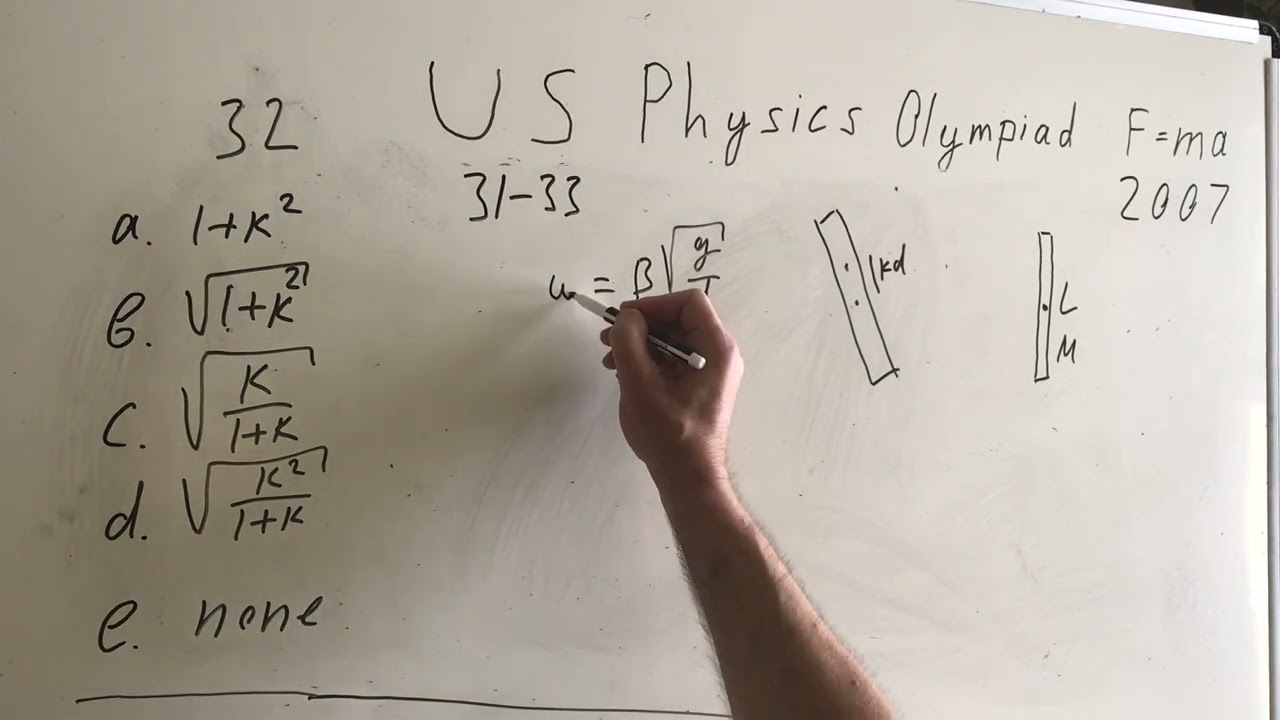 US Physics Olympiad F=ma
2007
31-33
32
a. 1+k²
b. √(1+k²)
c. √(k/(1+k))
d. √(k²/(1+k))
e. none
ω = β√(g/
kd
L
M